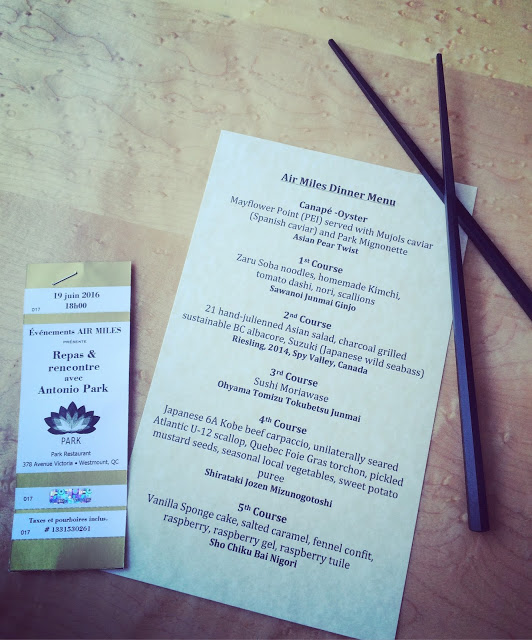 Air Miles Dinner Menu
Canapé -Oyster
Mayflower Point (PEI) served with Mujols caviar
(Spanish caviar) and Park Mignonette
Asian Pear Twist
1st Course
Zaru Soba noodles, homemade Kimchi,
tomato dashi, nori, scallions
Sawanoi Junmai Ginjo
2nd Course
21 hand-julienned Asian salad, charcoal grilled
sustainable BC albacore, Suzuki (Japanese wild seabass)
Riesling, 2014, Spy Valley, Canada
3rd Course
Sushi Moriawase
Ohyama Tomizu Tokubetsu Junmai
4th Course
Japanese 6A Kobe beef carpaccio, unilaterally seared
Atlantic U-12 scallop, Quebec Foie Gras torchon, pickled
mustard seeds, seasonal local vegetables, sweet potato
puree
Shirataki Jozen Mizunogotoshi
5th Course
Vanilla Sponge cake, salted caramel, fennel confit,
raspberry, raspberry gel, raspberry tuile
Sho Chiku Bai Nigori
19 juin 2016
18h00
017
Événements AIR MILES
PRÉSENTE
Repas &
rencontre
avec
Antonio Park
PARK
Park Restaurant
378 Avenue Victoria • Westmount, QC
017
Taxes et pourboires inclus.
# 1331530261
017